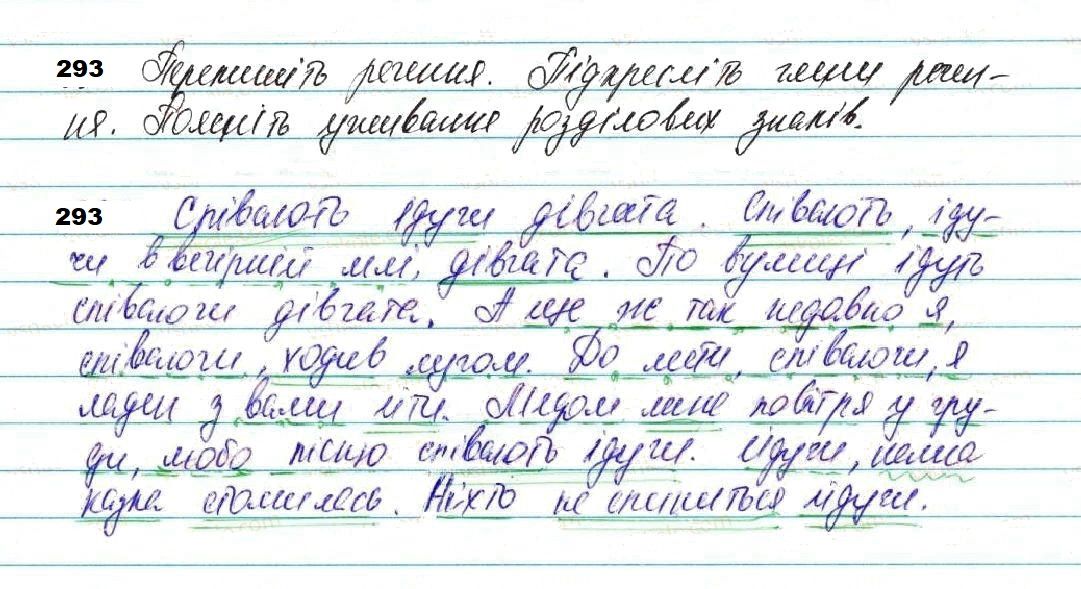 293 Перепишіть речення. Підкресліть члени речен-
ня. Поясніть уживання розділових знаків.
293 Співають ідучи дівчата. Співають, іду-
чи в вечірній млі, дівчата. По вулиці ідуть
співаючи дівчата. А ще ж так недавно я,
співаючи, ходив лугом. До мети, співаючи, я
ладен з вами йти. Медом лине повітря у гру-
ди, любо пісню співають ідучи. Ідучи,
казка стомилась. Ніхто не спиниться йдучи.